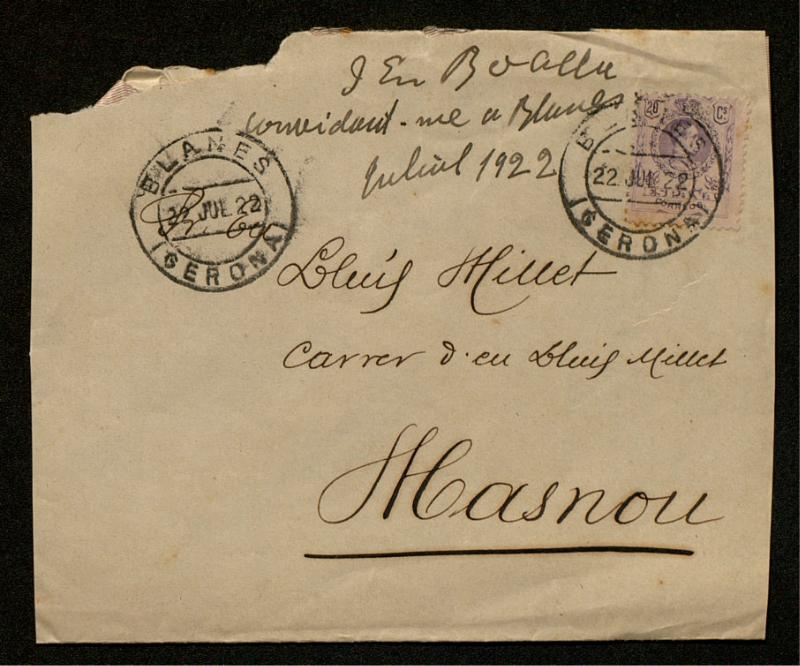 En
convidant-me a Blanes
Juliol 1922
20 Cs
BLANES
22 JUL 22
(GERONA)
BLANES
22 JUL 22
(GERONA)
Lluís Millet
Carrer d'en Lluis Millet
Masnou